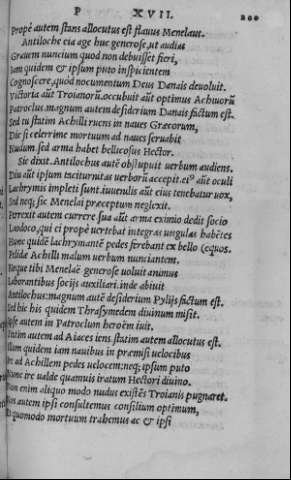 P XVII. 200
Propè autem stans allocutus est flauus Menelaus.
Antiloche eia age huc generose, ut audias
Grauem nuncium quod non debuisset fieri,
Iam quidem & ipsum puto inspicientem
Cognoscere, quod nocumentum Deus Danais deuoluit.
Victoria aũt Troianorũ, occubuit aũt optimus Achiuorũ
Patroclus. magnum autem desiderium Danais factum est.
Sed tu statim Achilli currens in naues Græcorum,
Dic si celerrime mortuum ad naues seruabit
Nudum. sed arma habet bellicosus Hector.
Sic dixit. Antilochus autẽ obstupuit uerbum audiens.
Diu aũt ipsum taciturnitas uerborũ accepit. ei⁹ aũt oculi
Lachrymis impleti sunt. iuuenilis aũt eius tenebatur uox,
Sed neq; sic Menelai præceptum neglexit.
Perrexit autem currere sua aũt arma eximio dedit socio
Laodoco, qui ei propè uertebat integras ungulas habẽtes
Hunc quidẽ lachrymantẽ pedes ferebant ex bello (equos.
Pelidæ Achilli malum uerbum nunciantem.
Neque tibi Menelaë generose uoluit animus
Laborantibus socijs auxiliari. inde abiuit
Antilochus: magnum autẽ desiderium Pylijs factum est.
Sed hic his quidem Thrasymedem diuinum misit.
Ipse autem in Patroclum heroëm iuit.
Statim autem ad Aiaces iens statim autem allocutus est.
Illum quidem iam nauibus in præmisi uelocibus
Ire ad Achillem pedes uelocem: neq; ipsum puto
Nunc ire ualde quamuis iratum Hectori diuino.
Non enim aliquo modo nudus existẽs Troianis pugnaret.
Nos autem ipsi consultemus consilium optimum,
Et quomodo mortuum trahemus ac & ipsi